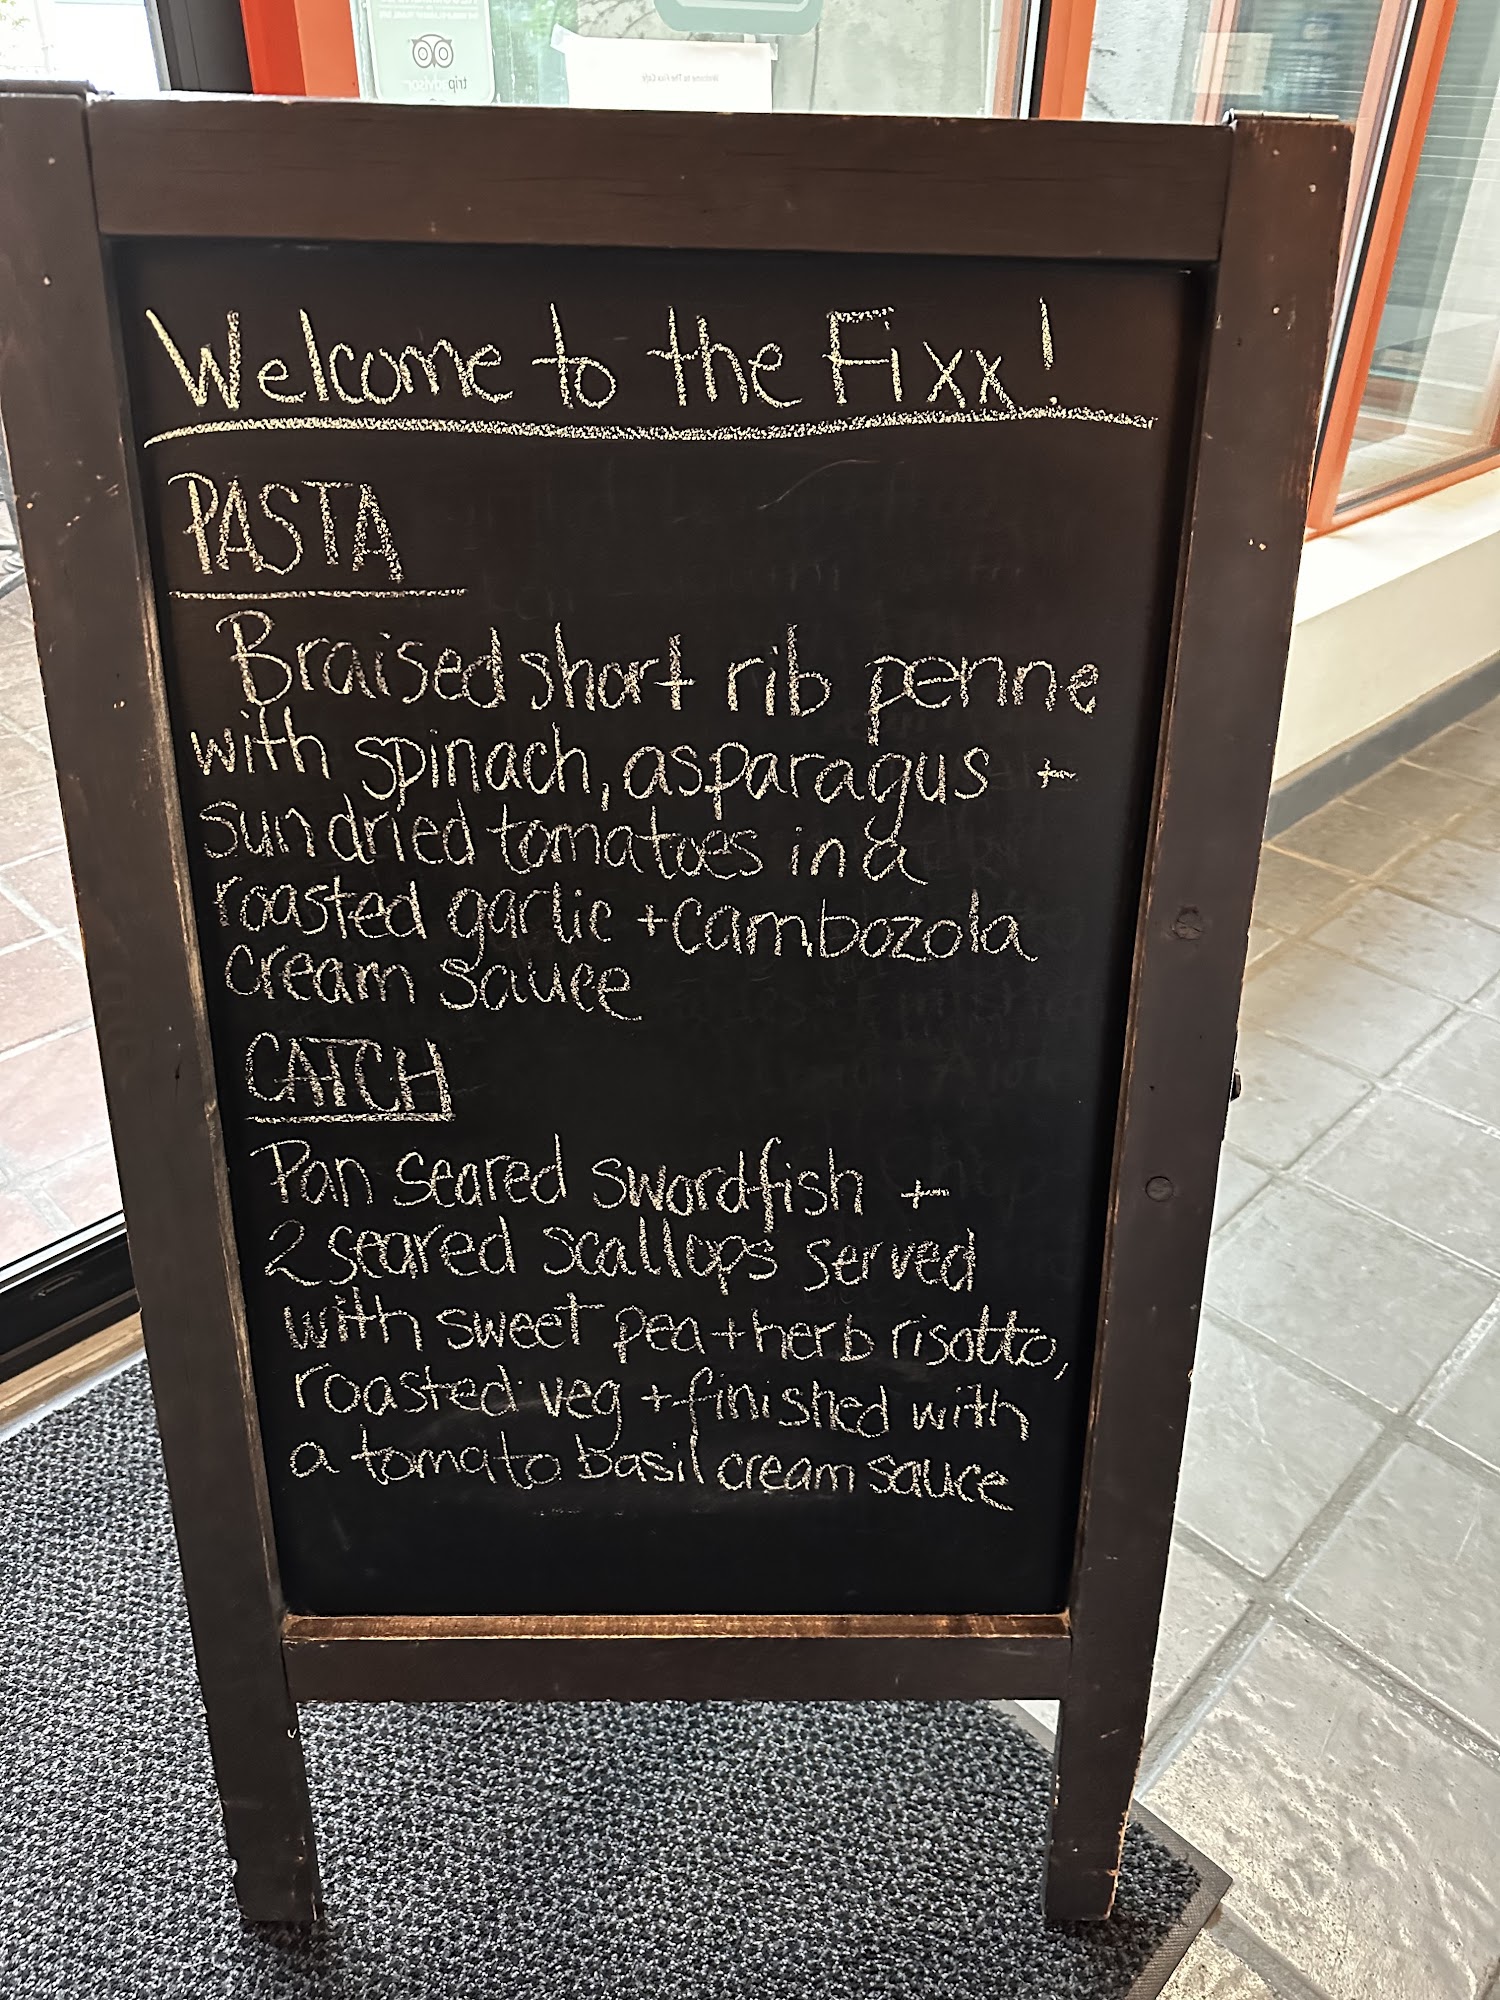 tripadvisor
Welcome to The Fixx Cafe
Welcome to the Fixx!
PASTA
Braised short rib penne
with spinach, asparagus +
sundried tomatoes in a
roasted garlic + cambozola
cream sauce
CATCH
Pan seared swordfish +
2 seared scallops served
with sweet pea + herb risotto,
roasted veg + finished with
a tomato basil cream sauce